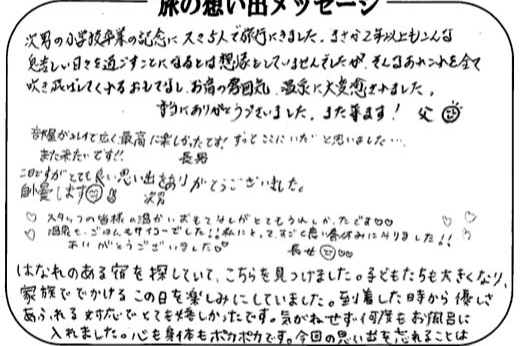 旅の想い出メッセージ
次男の小学校卒業の記念に久々5人で旅行にきました。まさか2年以上もこんな
息苦しい日々を過ごすことになるとは想像もしていませんでしたが、そんなあれこれを全て
吹き飛ばしてくれるおもてなし、お宿の雰囲気、温泉に大変癒されました。
本当にありがとうございました。また来ます！ 父
部屋がキレイで広く、最高に楽しかったです！ずっとここにいたいと思いました…
また来たいです！！ 長男
2日ですがとても良い思い出をありがとうございました。
自慢します 次男
♡ スタッフの皆様の温かいおもてなしがとてもうれしかったです♡♡
♡ 温泉も、ごはんもサイコーでした！！私にとって、すごく良い春休みになりました！！
ありがとうございました♡ 長女
はなれのある宿を探していて、こちらを見つけました。子どもたちも大きくなり、
家族ででかけるこの日を楽しみにしていました。到着した時から優しさ
あふれる対応でとても嬉しかったです。気がねせず何度もお風呂に
入れました。心も身体もポカポカです。今回の思い出を忘れることは